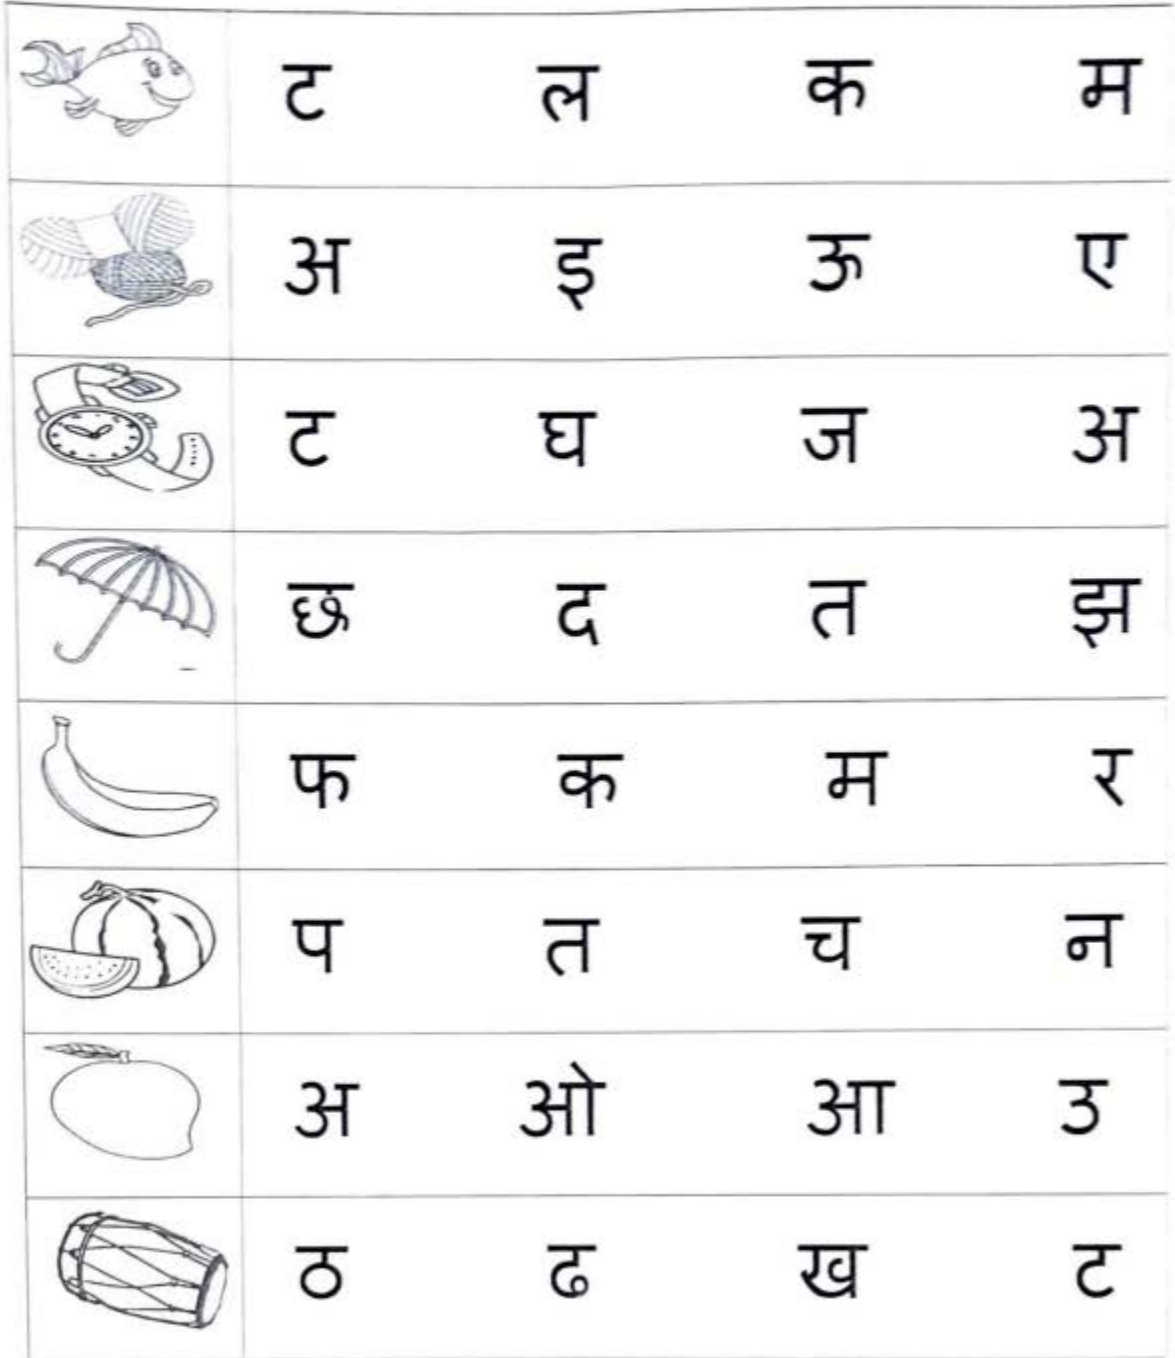 ट ल क म
अ इ ऊ ए
ट घ ज अ
छ द त झ
फ क म र
प त च न
अ ओ आ उ
ठ ढ ख ट